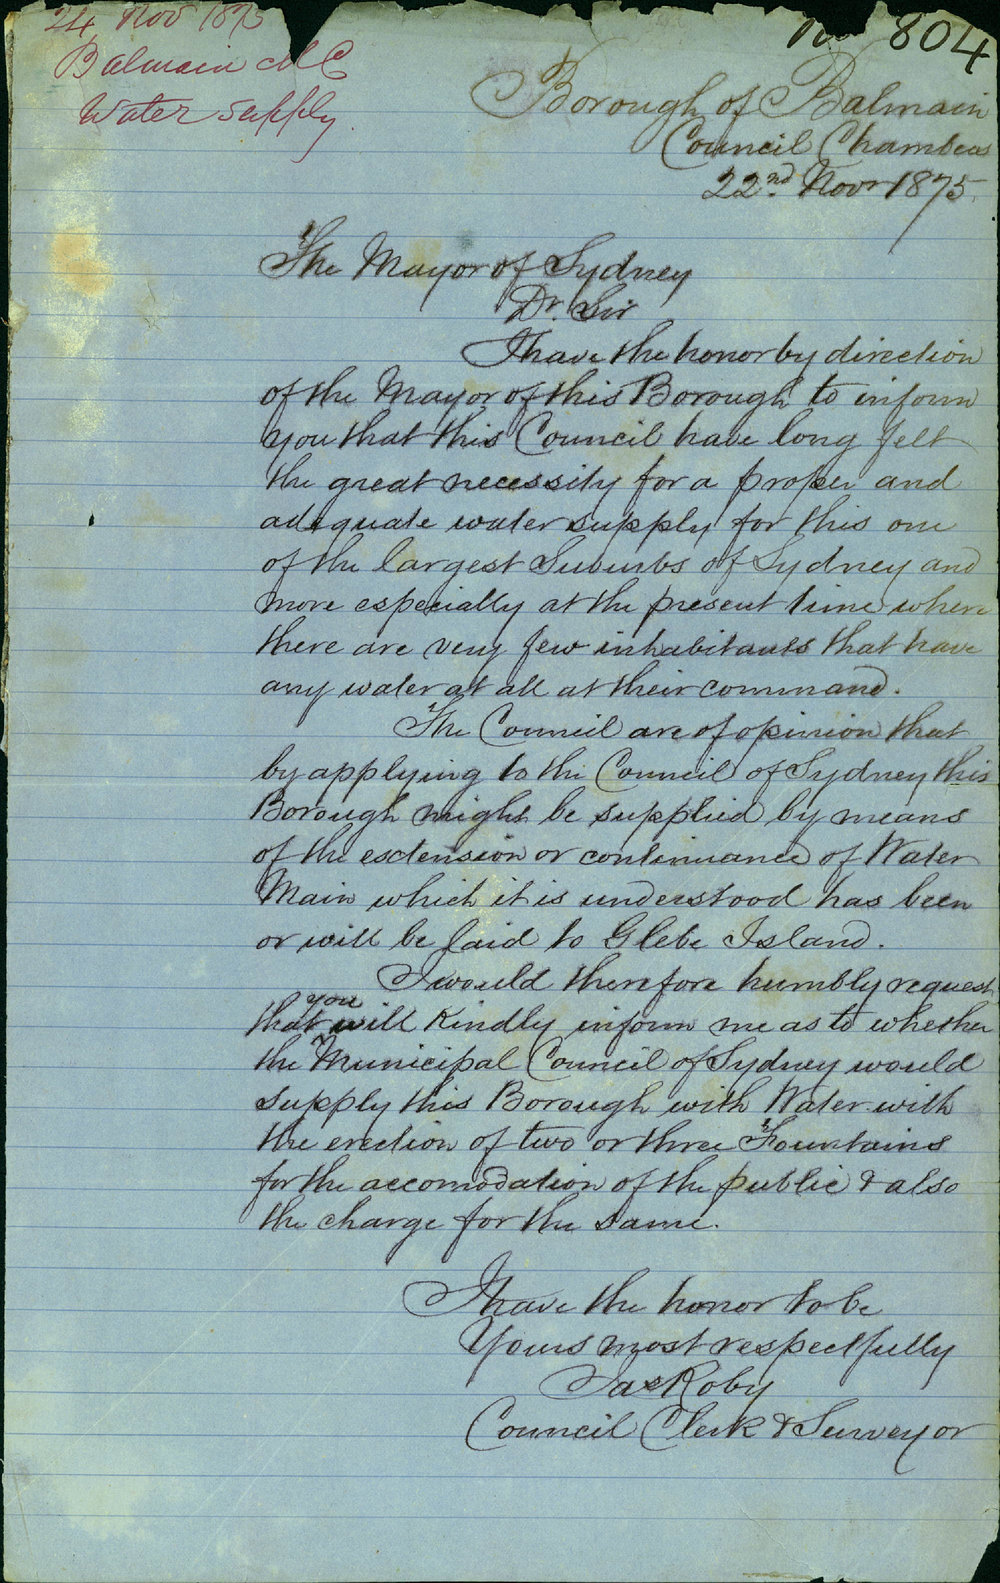 24 Nov 1875
Balmain M C
Water Supply.
No 804
Borough of Balmain
Council Chambers
22nd Novr 1875.
The Mayor of Sydney
Dr. Sir
I have the honor by direction
of the Mayor of this Borough to inform
you that this Council have long felt
the great necessity for a proper and
adequate water supply for this one
of the largest Suburbs of Sydney and
more especially at the present time where
there are very few inhabitants that have
any water at all at their command.
The Council are of opinion that
by applying to the Council of Sydney this
Borough might be supplied by means
of the extension or continuance of Water
Main which it is understood has been
or will be laid to Glebe Island.
I would therefore humbly request
that you will kindly inform me as to whether
the Municipal Council of Sydney would
supply this Borough with Water with
the erection of two or three Fountains
for the accomodation of the public & also
the charge for the same.
I have the honor to be
Yours most respectfully
Jas Roby
Council Clerk & Surveyor